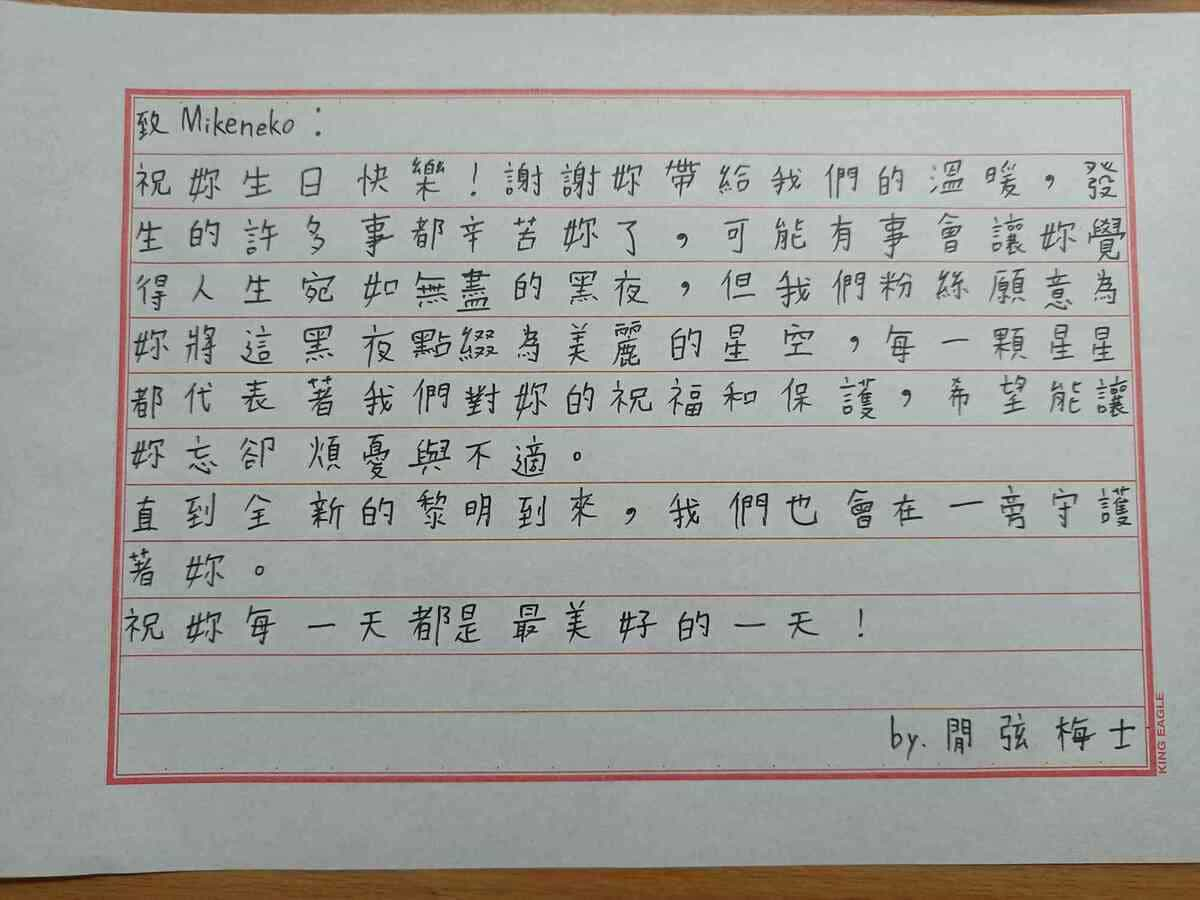 致 Mikeneko：
祝妳生日快樂！謝謝妳帶給我們的溫暖，發
生的許多事都辛苦妳了，可能有事會讓妳覺
得人生宛如無盡的黑夜，但我們粉絲願意為
妳將這黑夜點綴為美麗的星空，每一顆星星
都代表著我們對妳的祝福和保護，希望能讓
妳忘卻煩憂與不適。
直到全新的黎明到來，我們也會在一旁守護
著妳。
祝妳每一天都是最美好的一天！
by. 閒弦梅士
KING EAGLE